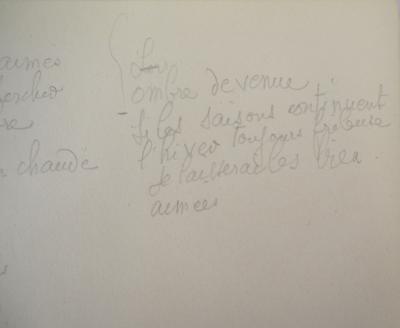 aimés
re
chaude
ombre devenue
Si les saisons continuent
l'hiver toujours
Je laisserai les bien
aimées